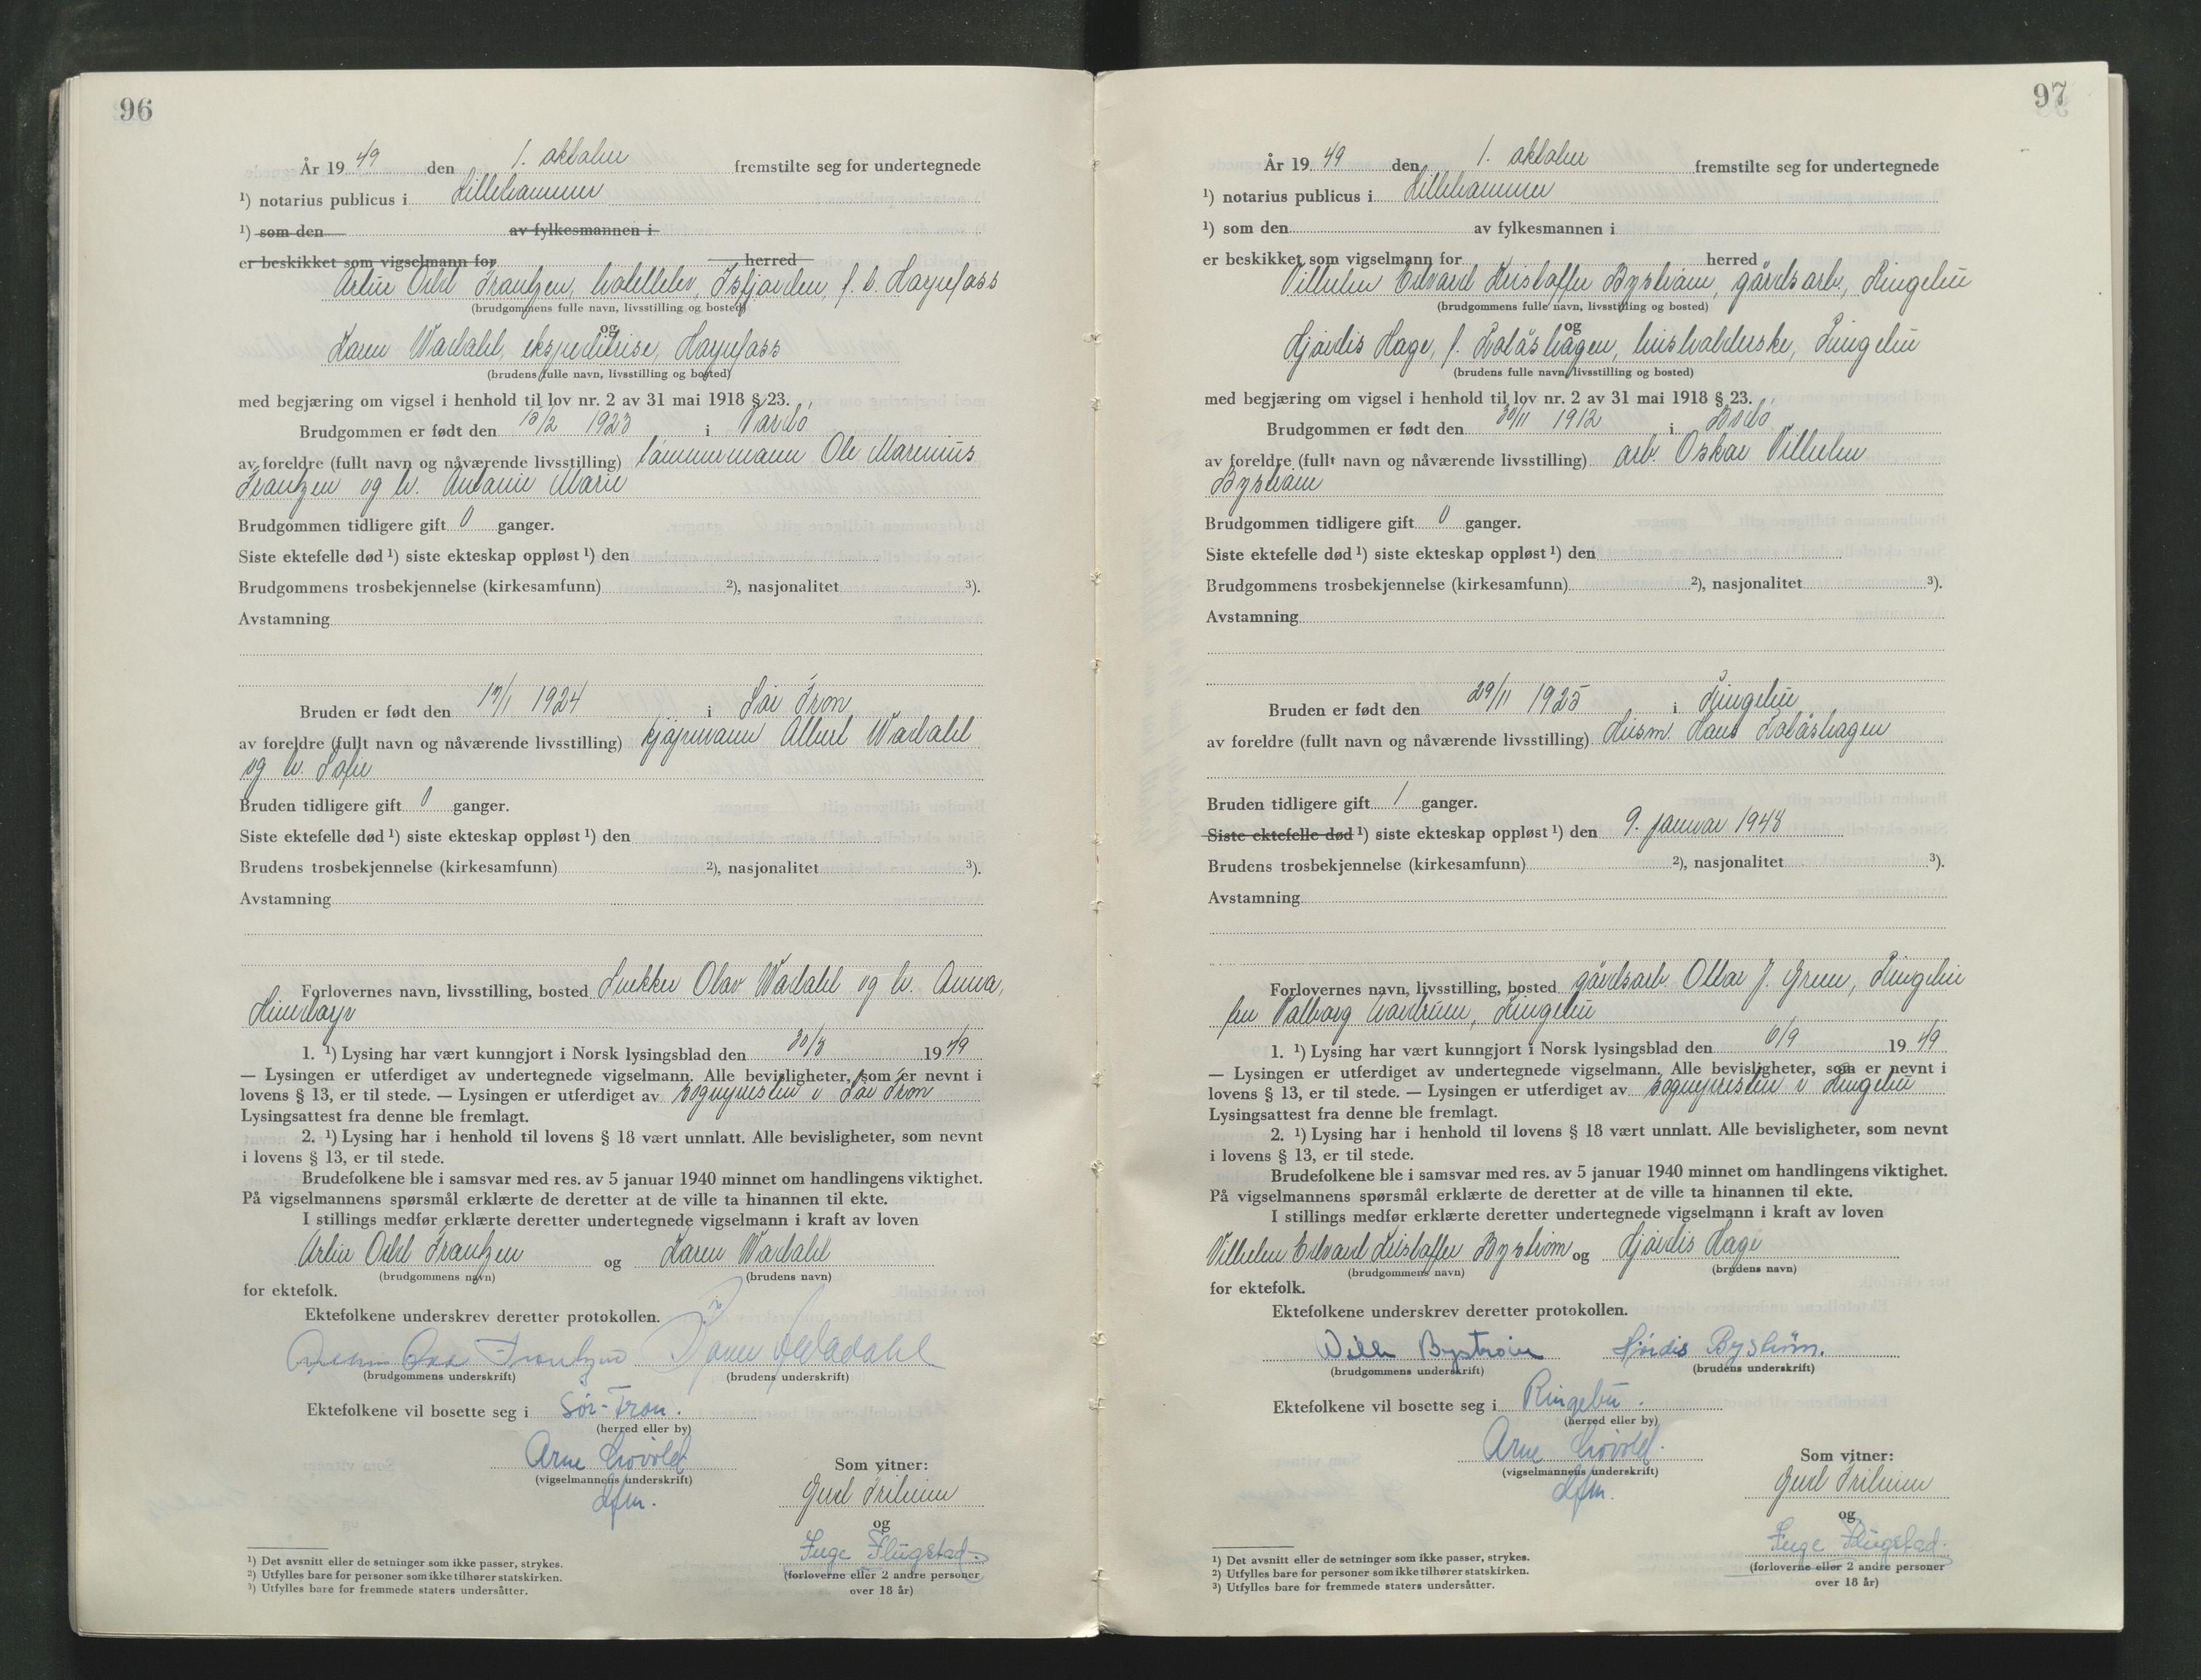 96
År 19 49 den 1. oktober fremstilte seg for undertegnede
¹) notarius publicus i Lillehammer
¹) som den av fylkesmannen i
er beskikket som vigselmann for herred
Artur Odd Frantzen, Isfjorden, f. t. Harpefoss
(brudgommens fulle navn, livsstilling og bosted)
og
Karen Wadahl, ekspeditrise, Harpefoss
(brudens fulle navn, livsstilling og bosted)
med begjæring om vigsel i henhold til lov nr. 2 av 31 mai 1918 § 23.
Brudgommen er født den 13/2 1923 i Vardø
av foreldre (fullt navn og nåværende livsstilling) tømmermann Ole Marenius
Frantzen og h. Antonie Marie
Brudgommen tidligere gift 0 ganger.
Siste ektefelle død ¹) siste ekteskap oppløst ¹) den
Brudgommens trosbekjennelse (kirkesamfunn) ²), nasjonalitet ³).
Avstamning
Bruden er født den 17/1 1924 i Sør Fron
av foreldre (fullt navn og nåværende livsstilling) kjøpmann Albert Wadahl
og h. Sofie
Bruden tidligere gift 0 ganger.
Siste ektefelle død ¹) siste ekteskap oppløst ¹) den
Brudens trosbekjennelse (kirkesamfunn) ²), nasjonalitet ³).
Avstamning
Forlovernes navn, livsstilling, bosted Snekker Olav Wadahl og h. Anna,
Hundorp
1. ¹) Lysing har vært kunngjort i Norsk lysingsblad den 30/8 19 49
— Lysingen er utferdiget av undertegnede vigselmann. Alle bevisligheter, som er nevnt i
lovens § 13, er til stede. — Lysingen er utferdiget av sognepresten i Sør Fron
Lysingsattest fra denne ble fremlagt.
2. ¹) Lysing har i henhold til lovens § 18 vært unnlatt. Alle bevisligheter, som nevnt
i lovens § 13, er til stede.
Brudefolkene ble i samsvar med res. av 5 januar 1940 minnet om handlingens viktighet.
På vigselmannens spørsmål erklærte de deretter at de ville ta hinannen til ekte.
I stillings medfør erklærte deretter undertegnede vigselmann i kraft av loven
Artur Odd Frantzen og Karen Wadahl
(brudgommens navn) (brudens navn)
for ektefolk.
Ektefolkene underskrev deretter protokollen.
Odd Frantzen Karen Wadahl
(brudgommens underskrift) (brudens underskrift)
Ektefolkene vil bosette seg i Sør-Fron.
(herred eller by)
Arne Løvold
(vigselmannens underskrift) Som vitner:
dfm. Gerd Triheim
og
Inge Flugstad
(forloverne eller 2 andre personer
over 18 år)
¹) Det avsnitt eller de setninger som ikke passer, strykes.
²) Utfylles bare for personer som ikke tilhører statskirken.
³) Utfylles bare for fremmede staters undersåtter.
97
År 19 49 den 1. oktober fremstilte seg for undertegnede
¹) notarius publicus i Lillehammer
¹) som den av fylkesmannen i
er beskikket som vigselmann for herred
Vilhelm Edvard Kristoffer Bystrøm, gårdsarb., Ringebu
(brudgommens fulle navn, livsstilling og bosted)
og
Hjørdis Hage, f. Kolåshagen, husholderske, Ringebu
(brudens fulle navn, livsstilling og bosted)
med begjæring om vigsel i henhold til lov nr. 2 av 31 mai 1918 § 23.
Brudgommen er født den 30/11 1912 i Bodø
av foreldre (fullt navn og nåværende livsstilling) arb. Oskar Vilhelm
Bystrøm
Brudgommen tidligere gift 0 ganger.
Siste ektefelle død ¹) siste ekteskap oppløst ¹) den
Brudgommens trosbekjennelse (kirkesamfunn) ²), nasjonalitet ³).
Avstamning
Bruden er født den 29/11 1925 i Ringebu
av foreldre (fullt navn og nåværende livsstilling) Husm. Hans Kolåshagen
Bruden tidligere gift 1 ganger.
Siste ektefelle død ¹) siste ekteskap oppløst ¹) den 9. januar 1948
Brudens trosbekjennelse (kirkesamfunn) ²), nasjonalitet ³).
Avstamning
Forlovernes navn, livsstilling, bosted gårdsarb. Ottar J. Gren, Ringebu
fru Valborg, Ringebu
1. ¹) Lysing har vært kunngjort i Norsk lysingsblad den 6/9 19 49
— Lysingen er utferdiget av undertegnede vigselmann. Alle bevisligheter, som er nevnt i
lovens § 13, er til stede. — Lysingen er utferdiget av sognepresten i Ringebu
Lysingsattest fra denne ble fremlagt.
2. ¹) Lysing har i henhold til lovens § 18 vært unnlatt. Alle bevisligheter, som nevnt
i lovens § 13, er til stede.
Brudefolkene ble i samsvar med res. av 5 januar 1940 minnet om handlingens viktighet.
På vigselmannens spørsmål erklærte de deretter at de ville ta hinannen til ekte.
I stillings medfør erklærte deretter undertegnede vigselmann i kraft av loven
Vilhelm Edvard Kristoffer Bystrøm og Hjørdis Hage
(brudgommens navn) (brudens navn)
for ektefolk.
Ektefolkene underskrev deretter protokollen.
Vilh Bystrøm Hjördis Byström.
(brudgommens underskrift) (brudens underskrift)
Ektefolkene vil bosette seg i Ringebu.
(herred eller by)
Arne Løvold.
(vigselmannens underskrift) Som vitner:
dfm. Gerd Triheim
og
Inge Flugstad.
(forloverne eller 2 andre personer
over 18 år)
¹) Det avsnitt eller de setninger som ikke passer, strykes.
²) Utfylles bare for personer som ikke tilhører statskirken.
³) Utfylles bare for fremmede staters undersåtter.